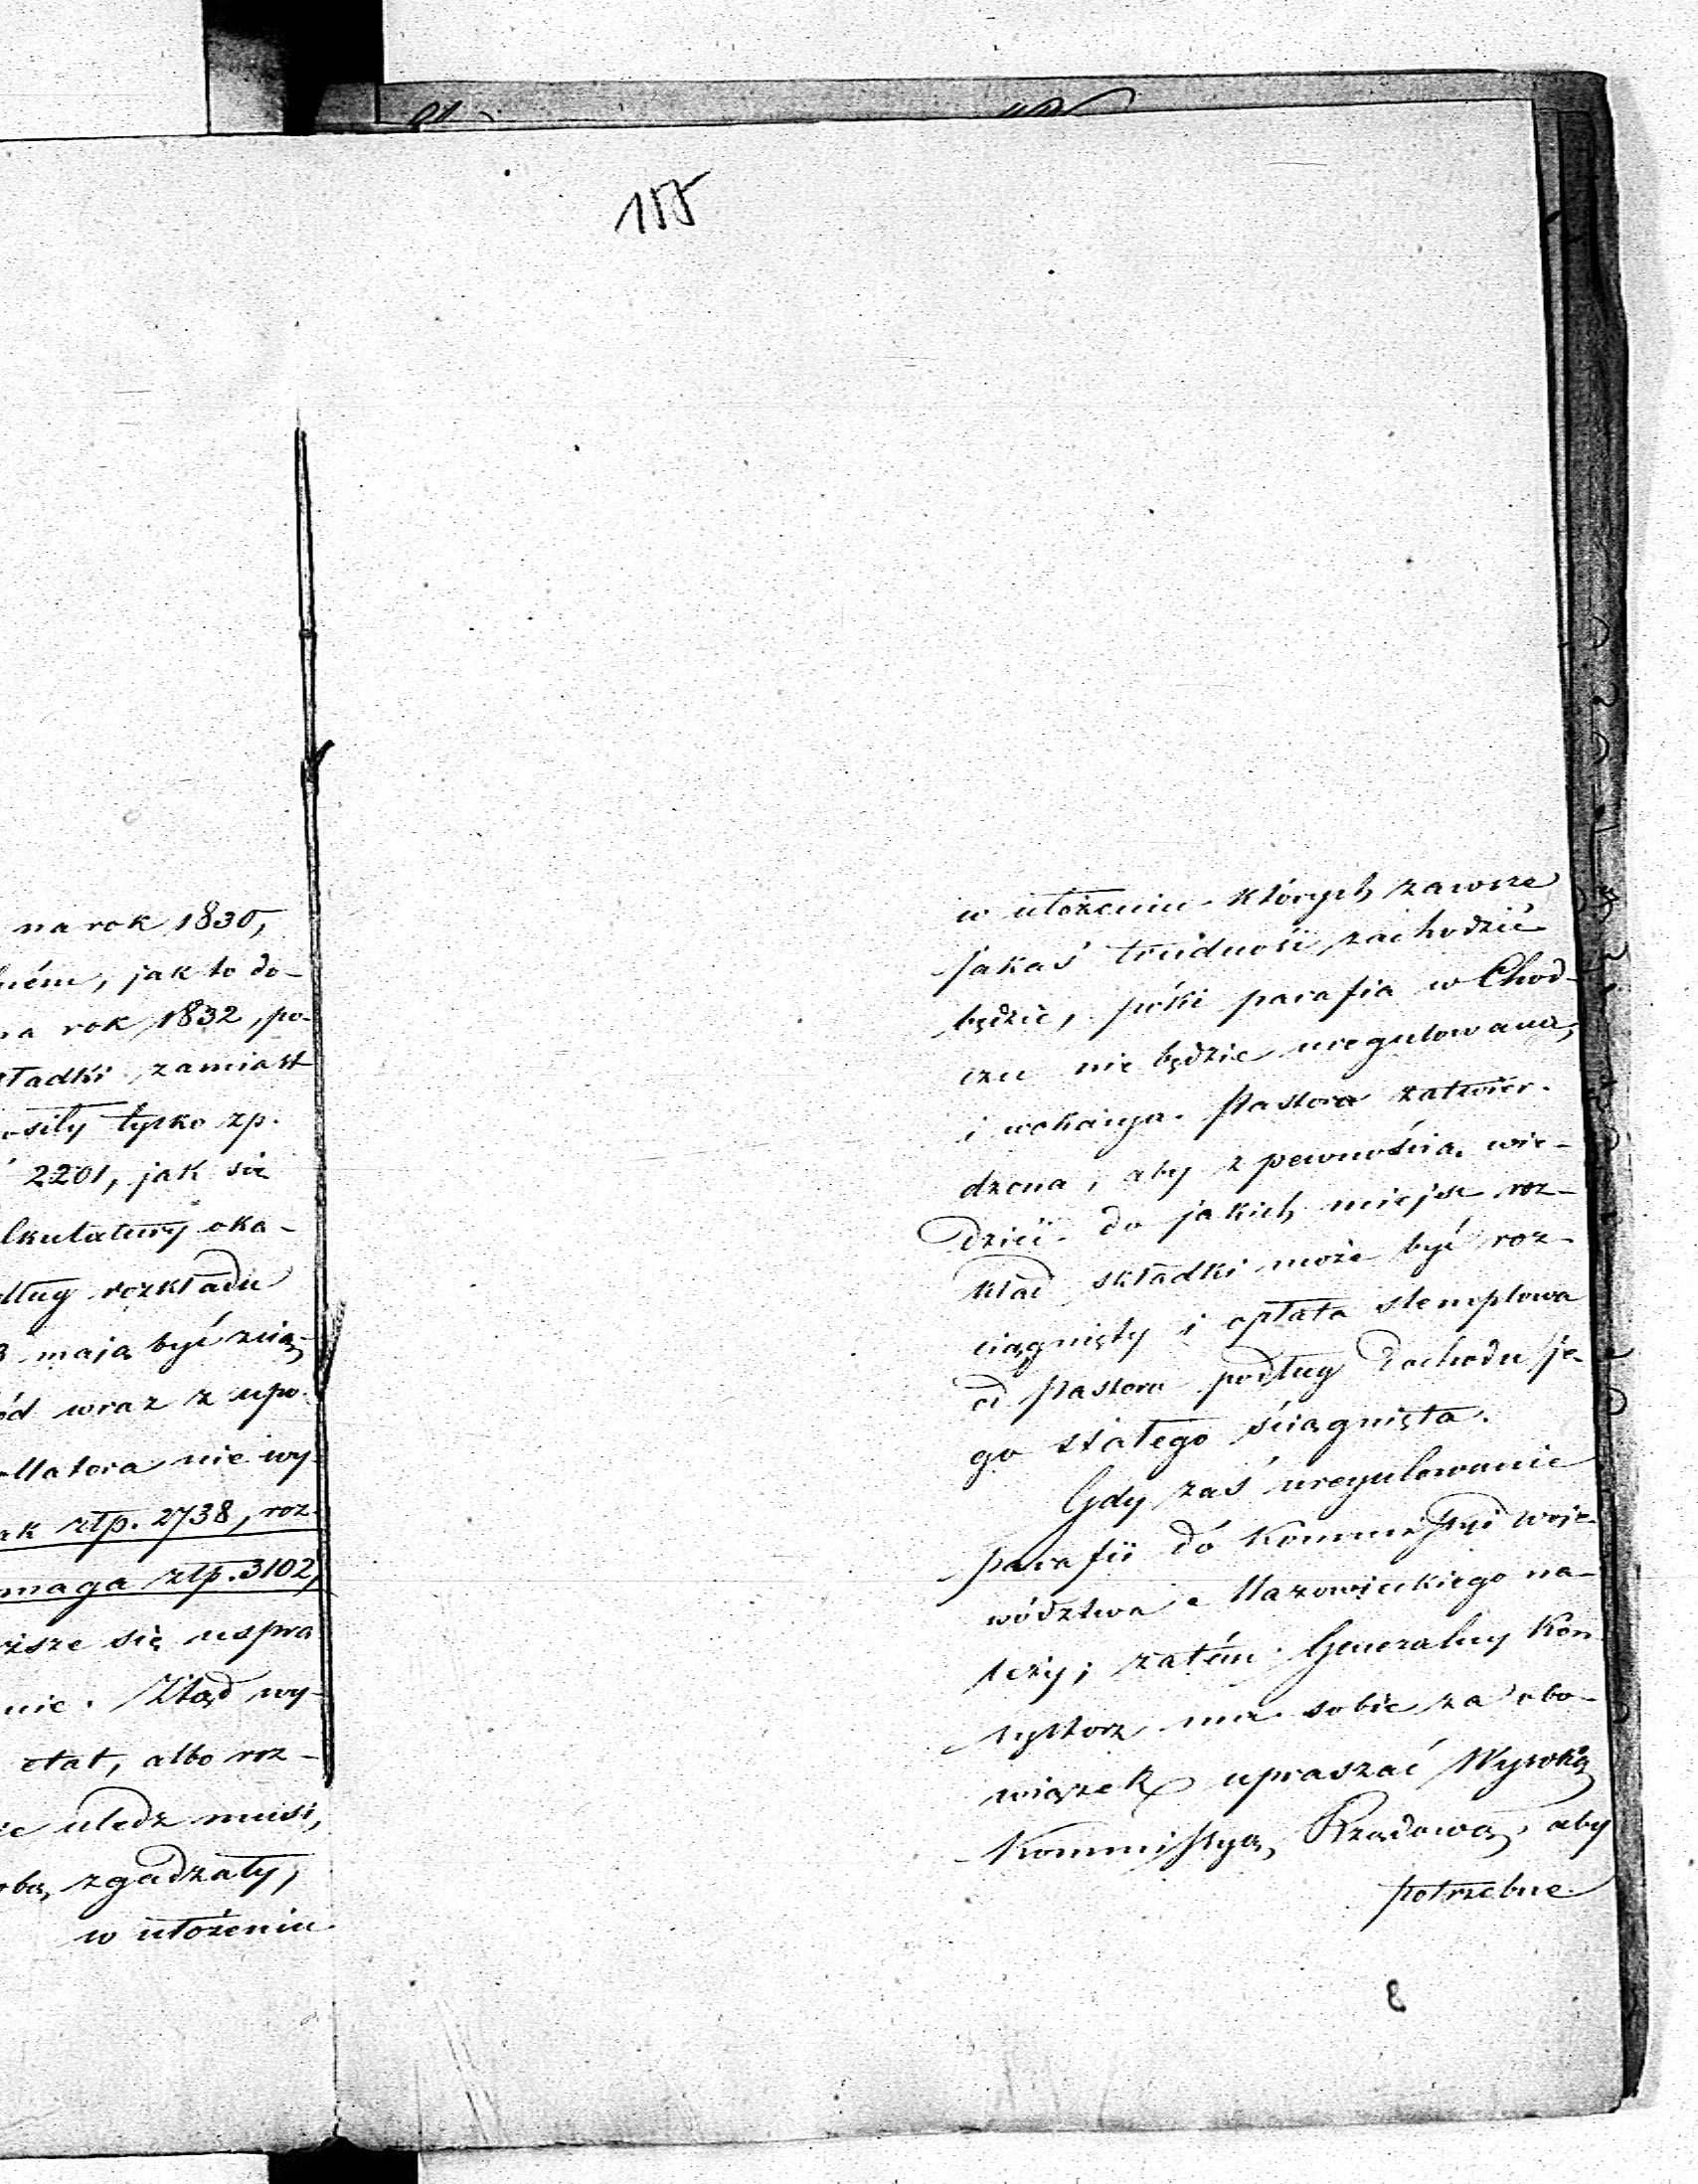 117
na rok 1830,
jak to do-
na rok 1832, po-
zamiast
tylko zp.
2201, jak się
oka-
rozkładu
mają być
wraz z upo-
nie wy-
złp. 2738, roz-
maga złp. 3102,
się uspra
nie. Ztąd wy-
etat, albo roz-
uledz musi,
zgadzały,
w ułożeniu
w ułożeniu których zawsze
jakaś trudność zachodzić
będzie, póki parafia w Chod-
czu nie będzie uregulowana,
i wokacya Pastora zatwier-
dzona, aby z pewnością wie-
dzieć do jakich miejsc roz-
kład składki może być roz-
ciągnięty i opłata stemplowa
od Pastora podług dochodu je-
go stałego ściągnięta.
Gdy zaś uregulowanie
parafii do Kommissyi woje-
wództwa Mazowieckiego na-
leży; zatém Generalny Kon-
systorz ma sobie za obo-
wiązek upraszać Wysoką
Kommissyą Rządową, aby
potrzebne
8